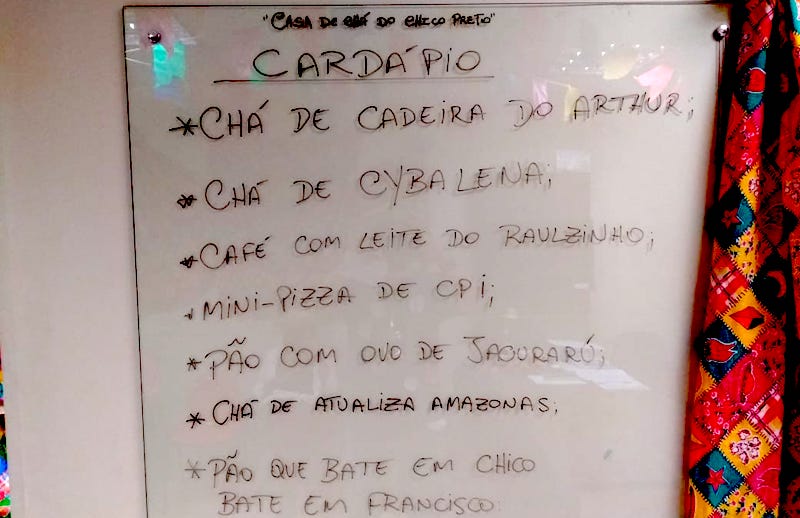 "CASA DE CHÁ DO CHICO PRETO"
CARDÁPIO
*CHÁ DE CADEIRA DO ARTHUR;
*CHÁ DE CYBALENA;
*CAFÉ COM LEITE DO RAULZINHO;
*MINI-PIZZA DE CPI;
*PÃO COM OVO DE JAQURARÚ;
*CHÁ DE ATUALIZA AMAZONAS;
*PÃO QUE BATE EM CHICO
BATE EM FRANCISCO.